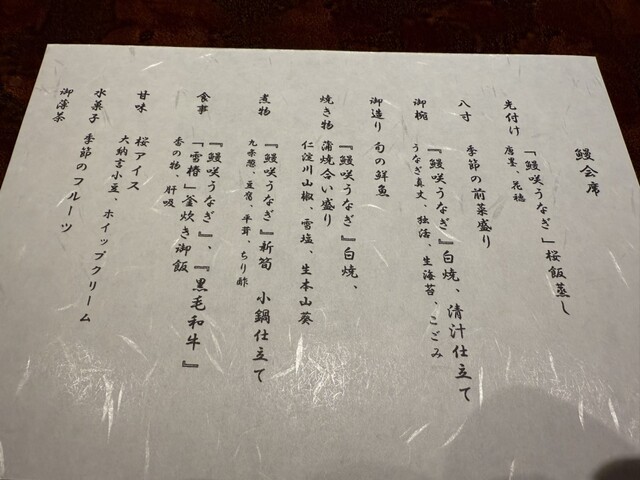 鰻会席
先付け 「鰻咲うなぎ」桜飯蒸し
唐墨、花穂
八寸 季節の前菜盛り
御椀 『鰻咲うなぎ』白焼、清汁仕立て
うなぎ真丈、独活、生海苔、こごみ
御造り 旬の鮮魚
焼き物 『鰻咲うなぎ』白焼、
蒲焼合い盛り
仁淀川山椒、雪塩、生本山葵
煮物 『鰻咲うなぎ』新筍 小鍋仕立て
九条葱、豆腐、平茸、ちり酢
食事 『鰻咲うなぎ』、『黒毛和牛』
「雪椿」釜炊き御飯
香の物、肝吸
甘味 桜アイス
大納言小豆、ホイップクリーム
水菓子 季節のフルーツ
御薄茶